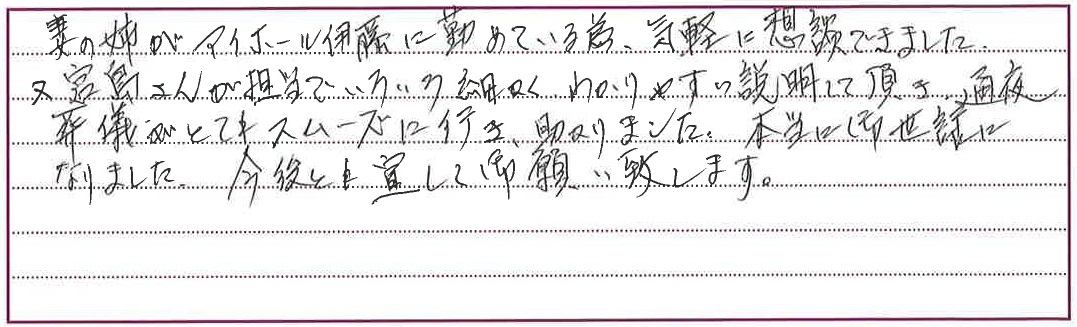 妻の姉がアイホール伊藤に勤めている為、気軽に想談できました。
又宮島さんが担当でいろいろ細かくわかりやすい説明して頂き、通夜
葬儀がとてもスムーズに行き、助かりました。本当に御世話に
なりました。今後とも宜しく御願い致します。